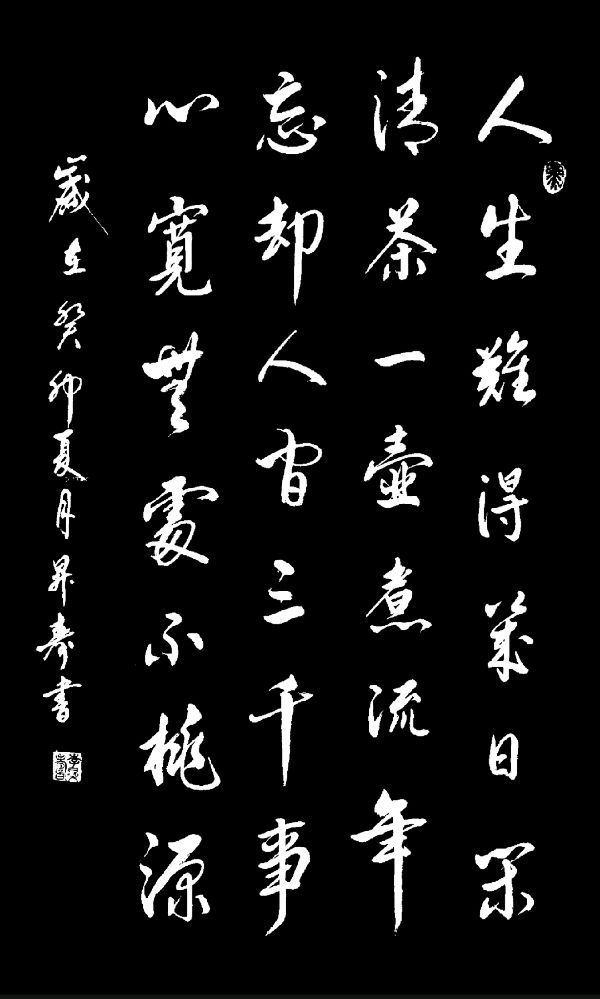 人生難得幾日閑
清茶一壺煮流年
忘却人間三千事
心寬無處不桃源
歲在癸卯夏月昇寿書